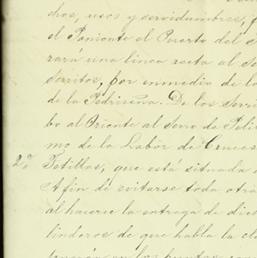 chos, usos y servidumbres, p
el Poniente el Puerto del
rará una linea recta al S
torritos, por enmedio de la
de la Pedriseña. De los Torre
bo al Oriente al Cerro de Peli
mo de la Labor de Cruces
2ª Tetillas, que está situada
A fin de evitarse toda otra
al hacerse la entrega de dich
linderos de que habla la cla